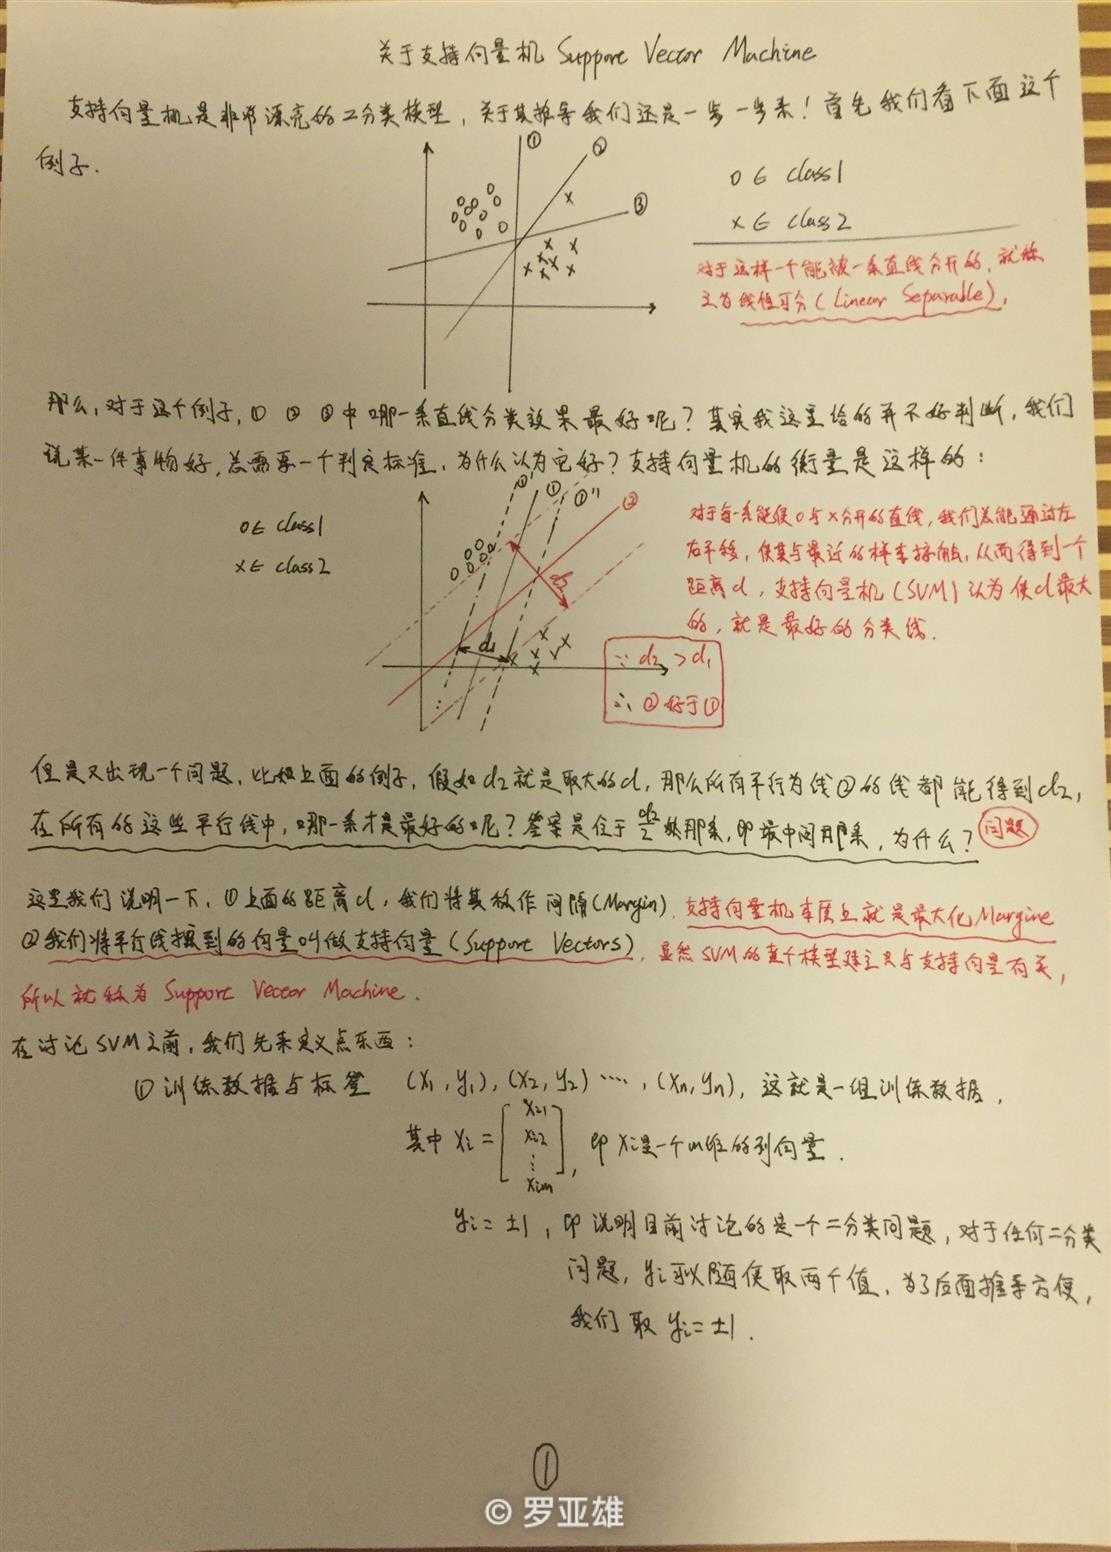 关于支持向量机 Support Vector Machine
支持向量机是非常漂亮的二分类模型，关于其推导我们还是一步一步来！首先我们看下面这个
例子.
① ② ③
o ∈ class1
x ∈ class2
对于这样一个能被一条直线分开的，就称
之为线性可分(Linear Separable).
那么，对于这个例子，① ② ③中哪一条直线分类效果最好呢？其实我这里给的并不好判断，我们
说某一件事物好，总需要一个判定标准，为什么认为它好？支持向量机的衡量是这样的：
o ∈ class1
x ∈ class2
①' ① ①'' ②
d1 d2
对于每一条能使o与x分开的直线，我们总能通过左
右平移，使其与最近的样本接触，从而得到一个
距离d，支持向量机(SVM)认为使d最大
的，就是最好的分类线.
∵ d2 > d1
∴ ②好于①
但是又出现一个问题，比如上面的例子，假如d2就是最大的d，那么所有平行为线②的线都能得到d2,
在所有的这些平行线中，哪一条才是最好的呢？答案是位于d2/2处那条，即最中间那条，为什么？ 问题
这里我们说明一下，①上面的距离d，我们将其称作间隔(Margin). 支持向量机本质上就是最大化Margine
②我们将平行线擦到的向量叫做支持向量(Support Vectors). 显然SVM的整个模型建立只与支持向量有关，
所以就称为 Support Vector Machine.
在讨论SVM之前，我们先来定义点东西：
①训练数据与标签 (x1, y1), (x2, y2) ····, (xn, yn), 这就是一组训练数据.
其中 xi = [xi1 xi2 ⋮ xim], 即xi是一个m维的列向量.
yi = ±1, 即说明目前讨论的是一个二分类问题，对于任何二分类
问题，yi可以随便取两个值，为了后面推导方便，
我们取 yi = ±1.
①
© 罗亚雄